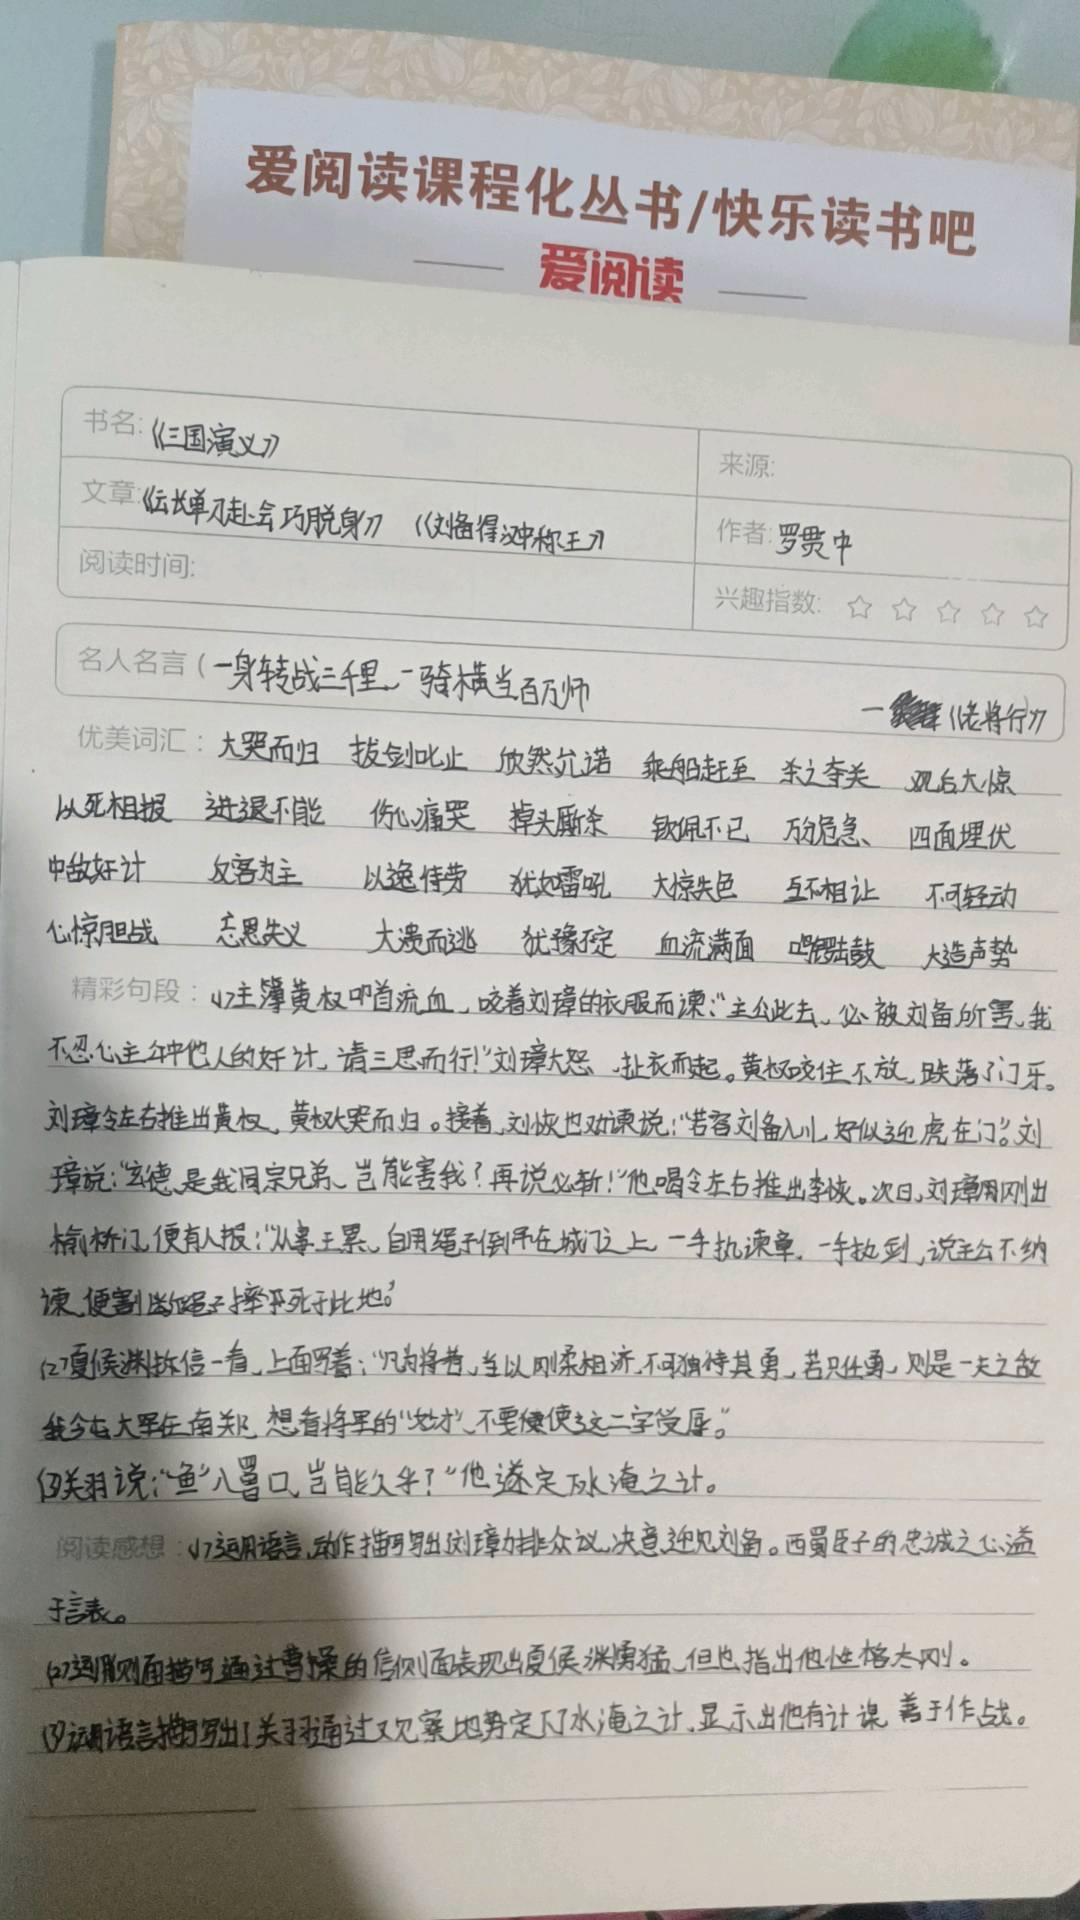 爱阅读课程化丛书/快乐读书吧
爱阅读
书名:《三国演义》
来源:
文章:《云长单刀赴会巧脱身》 《刘备得汉中称王》
作者:罗贯中
阅读时间:
兴趣指数: ☆ ☆ ☆ ☆ ☆
名人名言(一身转战三千里,一骑横当百万师
—《老将行》
优美词汇: 大哭而归 拔剑叱止 欣然允诺 乘船赶至 杀之夺关 观后大惊
以死相报 进退不能 伤心痛哭 掉头厮杀 钦佩不已 万分危急、 四面埋伏
中敌奸计 反客为主 以逸待劳 犹如雷吼 大惊失色 互不相让 不可轻动
心惊胆战 忘恩失义 大溃而逃 犹豫不定 血流满面 鸣锣击鼓 大造声势
精彩句段: (1)主簿黄权叩首流血,咬着刘璋的衣服而谏:“主公此去,必被刘备所害,我
不忍心主公中他人的奸计,请三思而行!”刘璋大怒,扯衣而起。黄权咬住不放,跌落了门牙。
刘璋令左右推出黄权,黄权大哭而归。接着,刘恢也劝谏说:“若容刘备入川,好似迎虎在门”。刘
璋说:“玄德是我同宗兄弟,岂能害我?再说必斩!”他喝令左右推出李恢。次日,刘璋刚出
榆桥门,便有人报:“从事王累,自用绳子倒吊在城门之上,一手执谏章,一手执剑,说主公不纳
谏,便割断绳子摔死于此地。”
(2)夏侯渊拆信一看,上面写着:“凡为将者,当以刚柔相济,不可独恃其勇,若只任勇,则是一夫之敌
我今屯大军在南郑,想看将军的“妙才”,不要使这二字受辱。”
(3)关羽说:“鱼”入罾口,岂能久乎?“他遂定下水淹之计。
阅读感想: (1)运用语言,动作描写写出刘璋力排众议,决意迎见刘备。西蜀臣子的忠诚之心溢
于言表。
(2)运用侧面描写通过曹操的信侧面表现出夏侯渊勇猛,但也指出他性格太刚。
(3)运用语言描写写出了关羽通过观察地势定下了水淹之计,显示出他有计谋 善于作战。